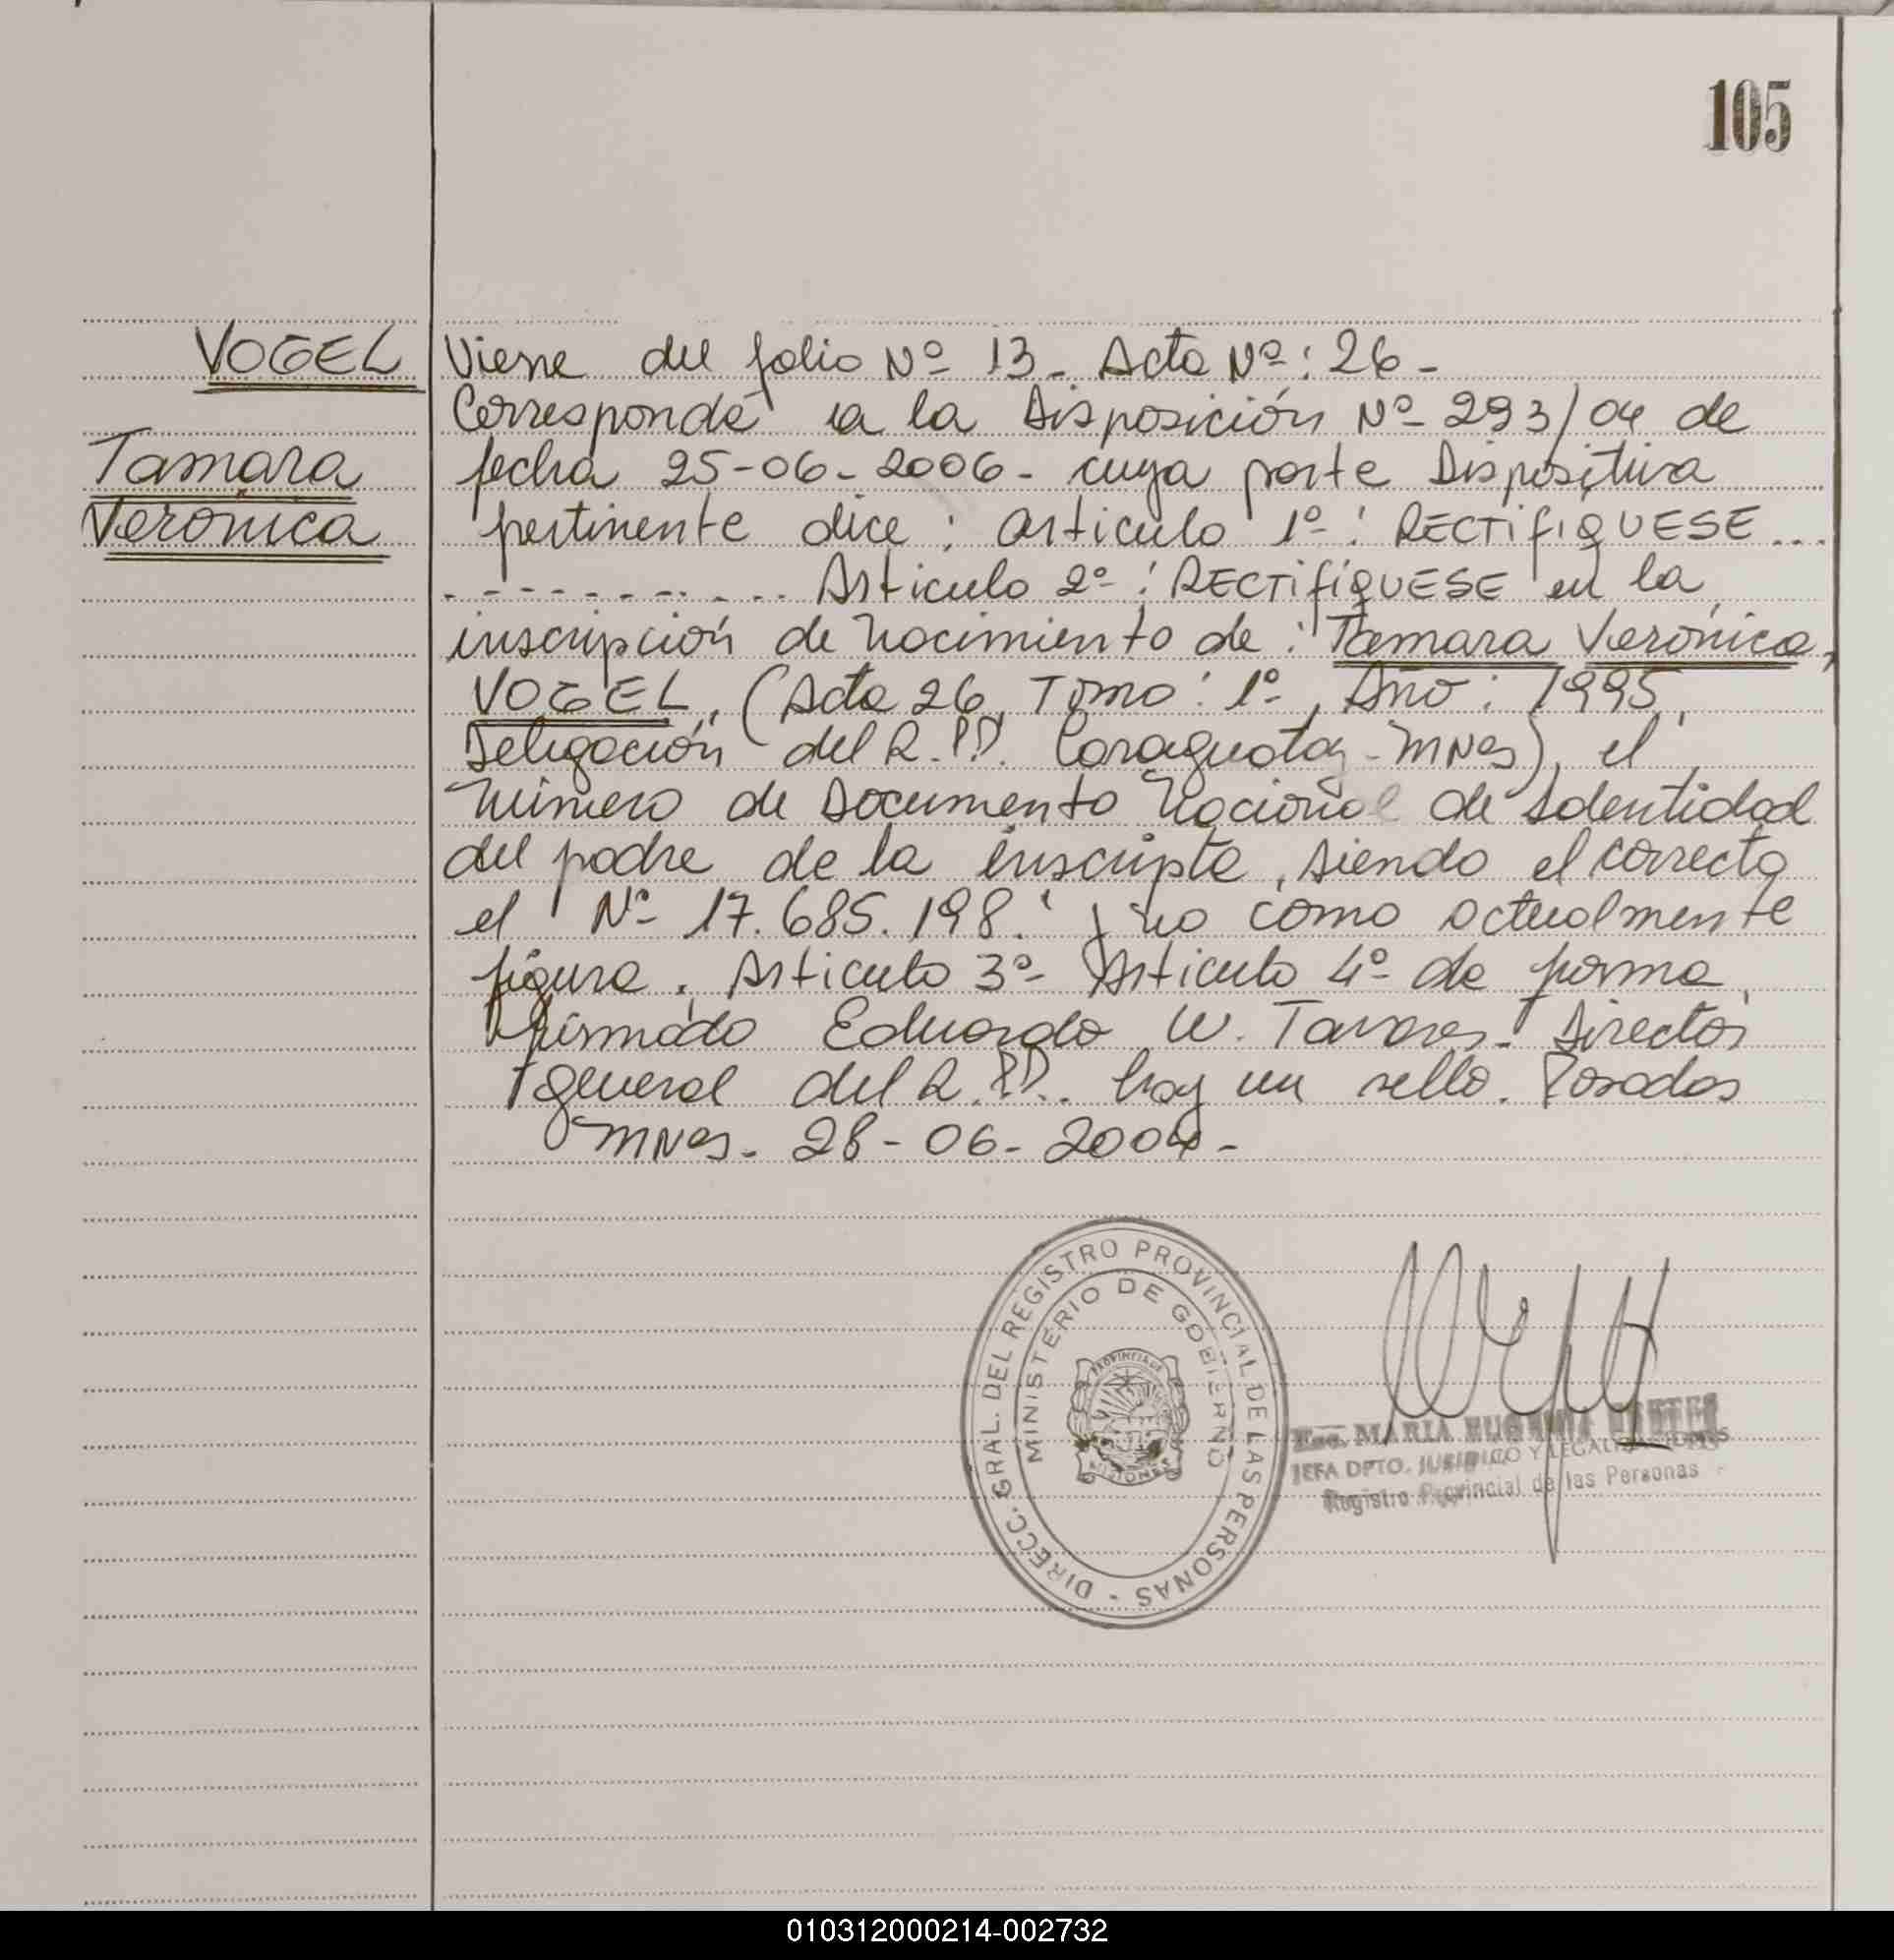 105
VOGEL
Tamara
Verónica
Viene del folio Nº 13. Acta Nº: 26-
Corresponde a la Disposición Nº 293/04 de
fecha 25-06-2006- cuya parte Dispositiva
pertinente dice: articulo 1º: RECTIFIQUESE...
............ Articulo 2º: RECTIFIQUESE en la
inscripción de Nacimiento de: Tamara Verónica,
VOGEL, (Acta 26, Tomo: 1º, Año: 1995,
Delegación del R.P.P. Caraguatay-MNes), el
Número de Documento Nacional de Identidad
del padre de la inscripta, siendo el correcto
el Nº 17.685.198. y no como actualmente
figura. Articulo 3º Articulo 4º de forma,
firmado Eduardo W. Tavares. Director
general del R.P.P. hay un sello. Posadas
MNes. 28-06-2004-
DIRECC. GRAL. DEL REGISTRO PROVINCIAL DE LAS PERSONAS -
MINISTERIO DE GOBIERNO
PROVINCIA DE
MISIONES
Esc. MARIA EUGENIA
JEFA DPTO. JURIDICO Y LEGALIZACIONES
Registro Provincial de las Personas
010312000214-002732